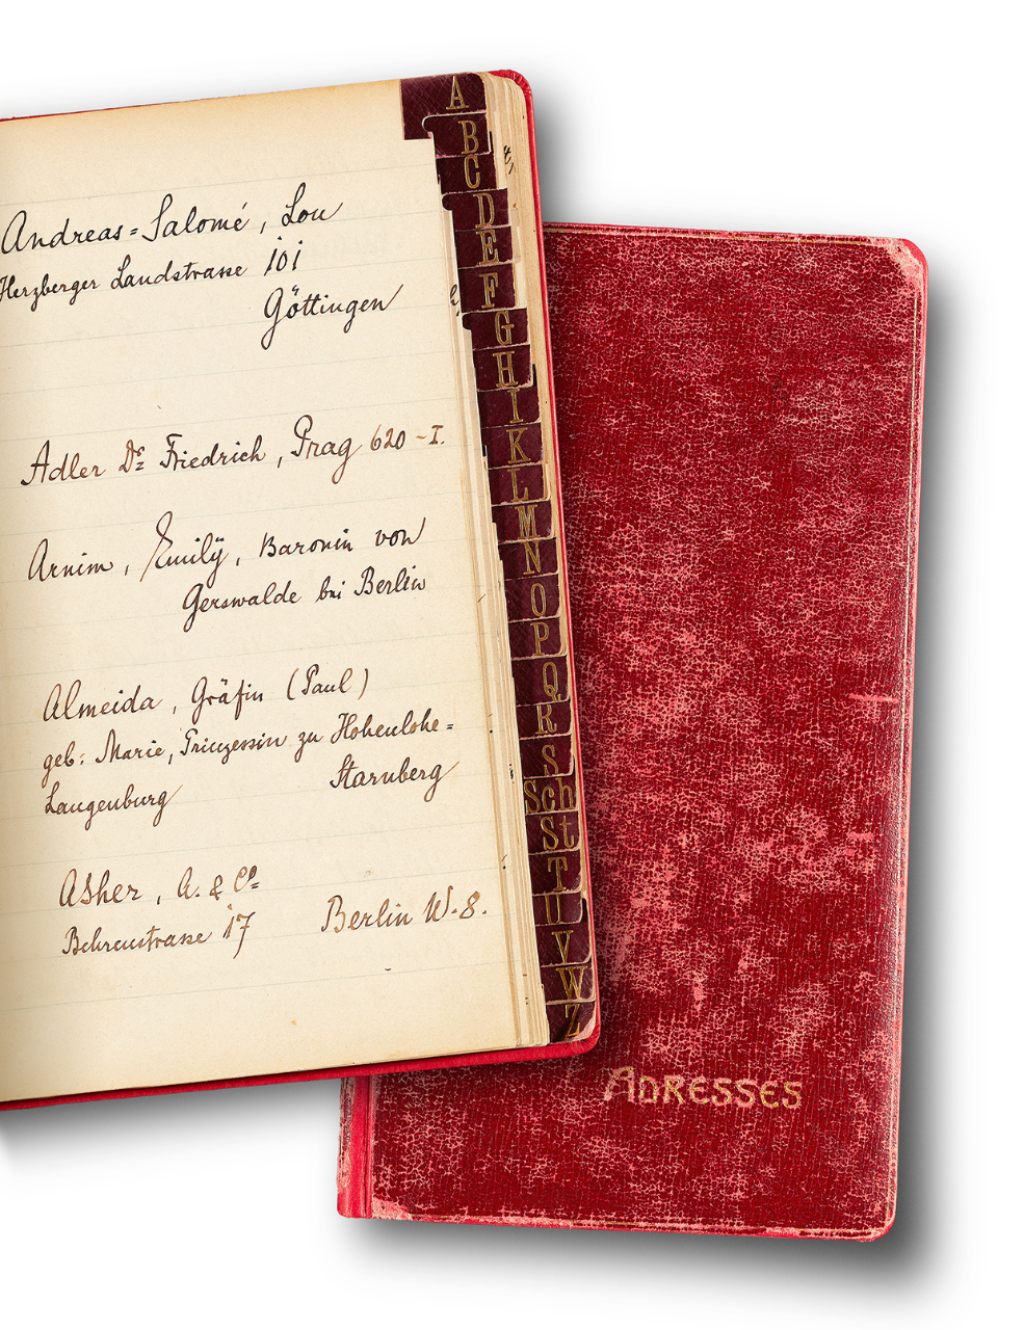 Andreas=Salomé, Lou
Herzberger Landstrasse 101
Göttingen
Adler Dr. Friedrich, Prag 620-I.
Arnim, Emily, Baronin von
Gerswalde bei Berlin
Almeida, Gräfin (Paul)
geb: Marie, Prinzessin zu Hohenlohe=
Langenburg Starnberg
Asher, A. & Co.
Behrenstrasse 17 Berlin W.8.
A
B
C
D
E
F
G
H
I
K
L
M
N
O
P
Q
R
S
Sch
St
T
U
V
W
Z
ADRESSES